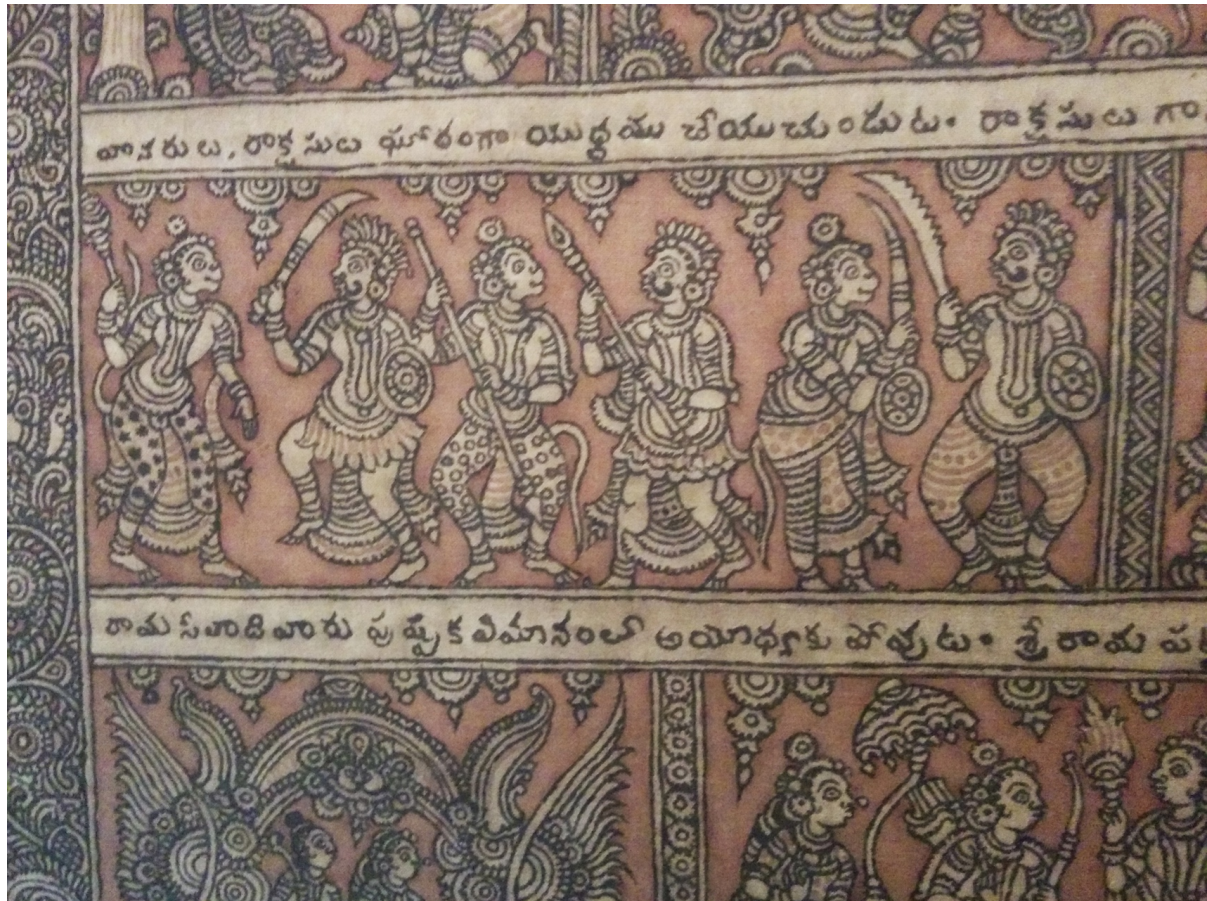 వానరులు, రాక్షసులు ఘోరంగా యుద్ధము చేయుచుండుట. రాక్షసులు గా
రామ సేవాడివారు పుష్పక విమానంలో అయోధ్యకు పోవుట. శ్రీ రామ పట